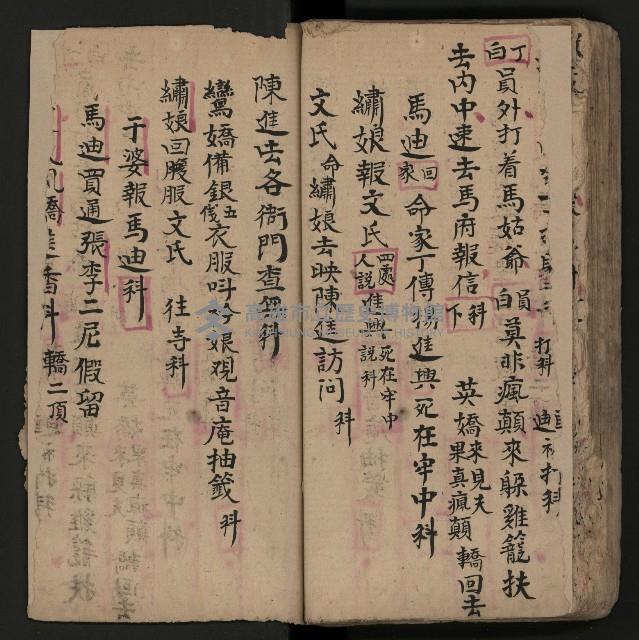 打科 迪衤打科
丁白 員外打着馬姑爺 員白 莫非瘋顛來躲雞籠扶
去內中速去馬府報信 科下 英嬌來見夫果真瘋顛 轎回去
馬迪回家 命家丁傳揚進興死在牢中科
繡娘報文氏 四處人説進興死在牢中説科
文氏命繡娘去映陳進訪問 科
陳進去各衙門查笝科
鸞嬌備銀五俴衣服呌令娘观音庵抽籤 科
繡娘回覆服文氏 往寺科
干婆報馬迪科
馬迪買通張李二尼假留
嬌進香科 轎二頂
高雄市立歷史博物館
KAOHSIUNG MUSEUM OF HISTORY